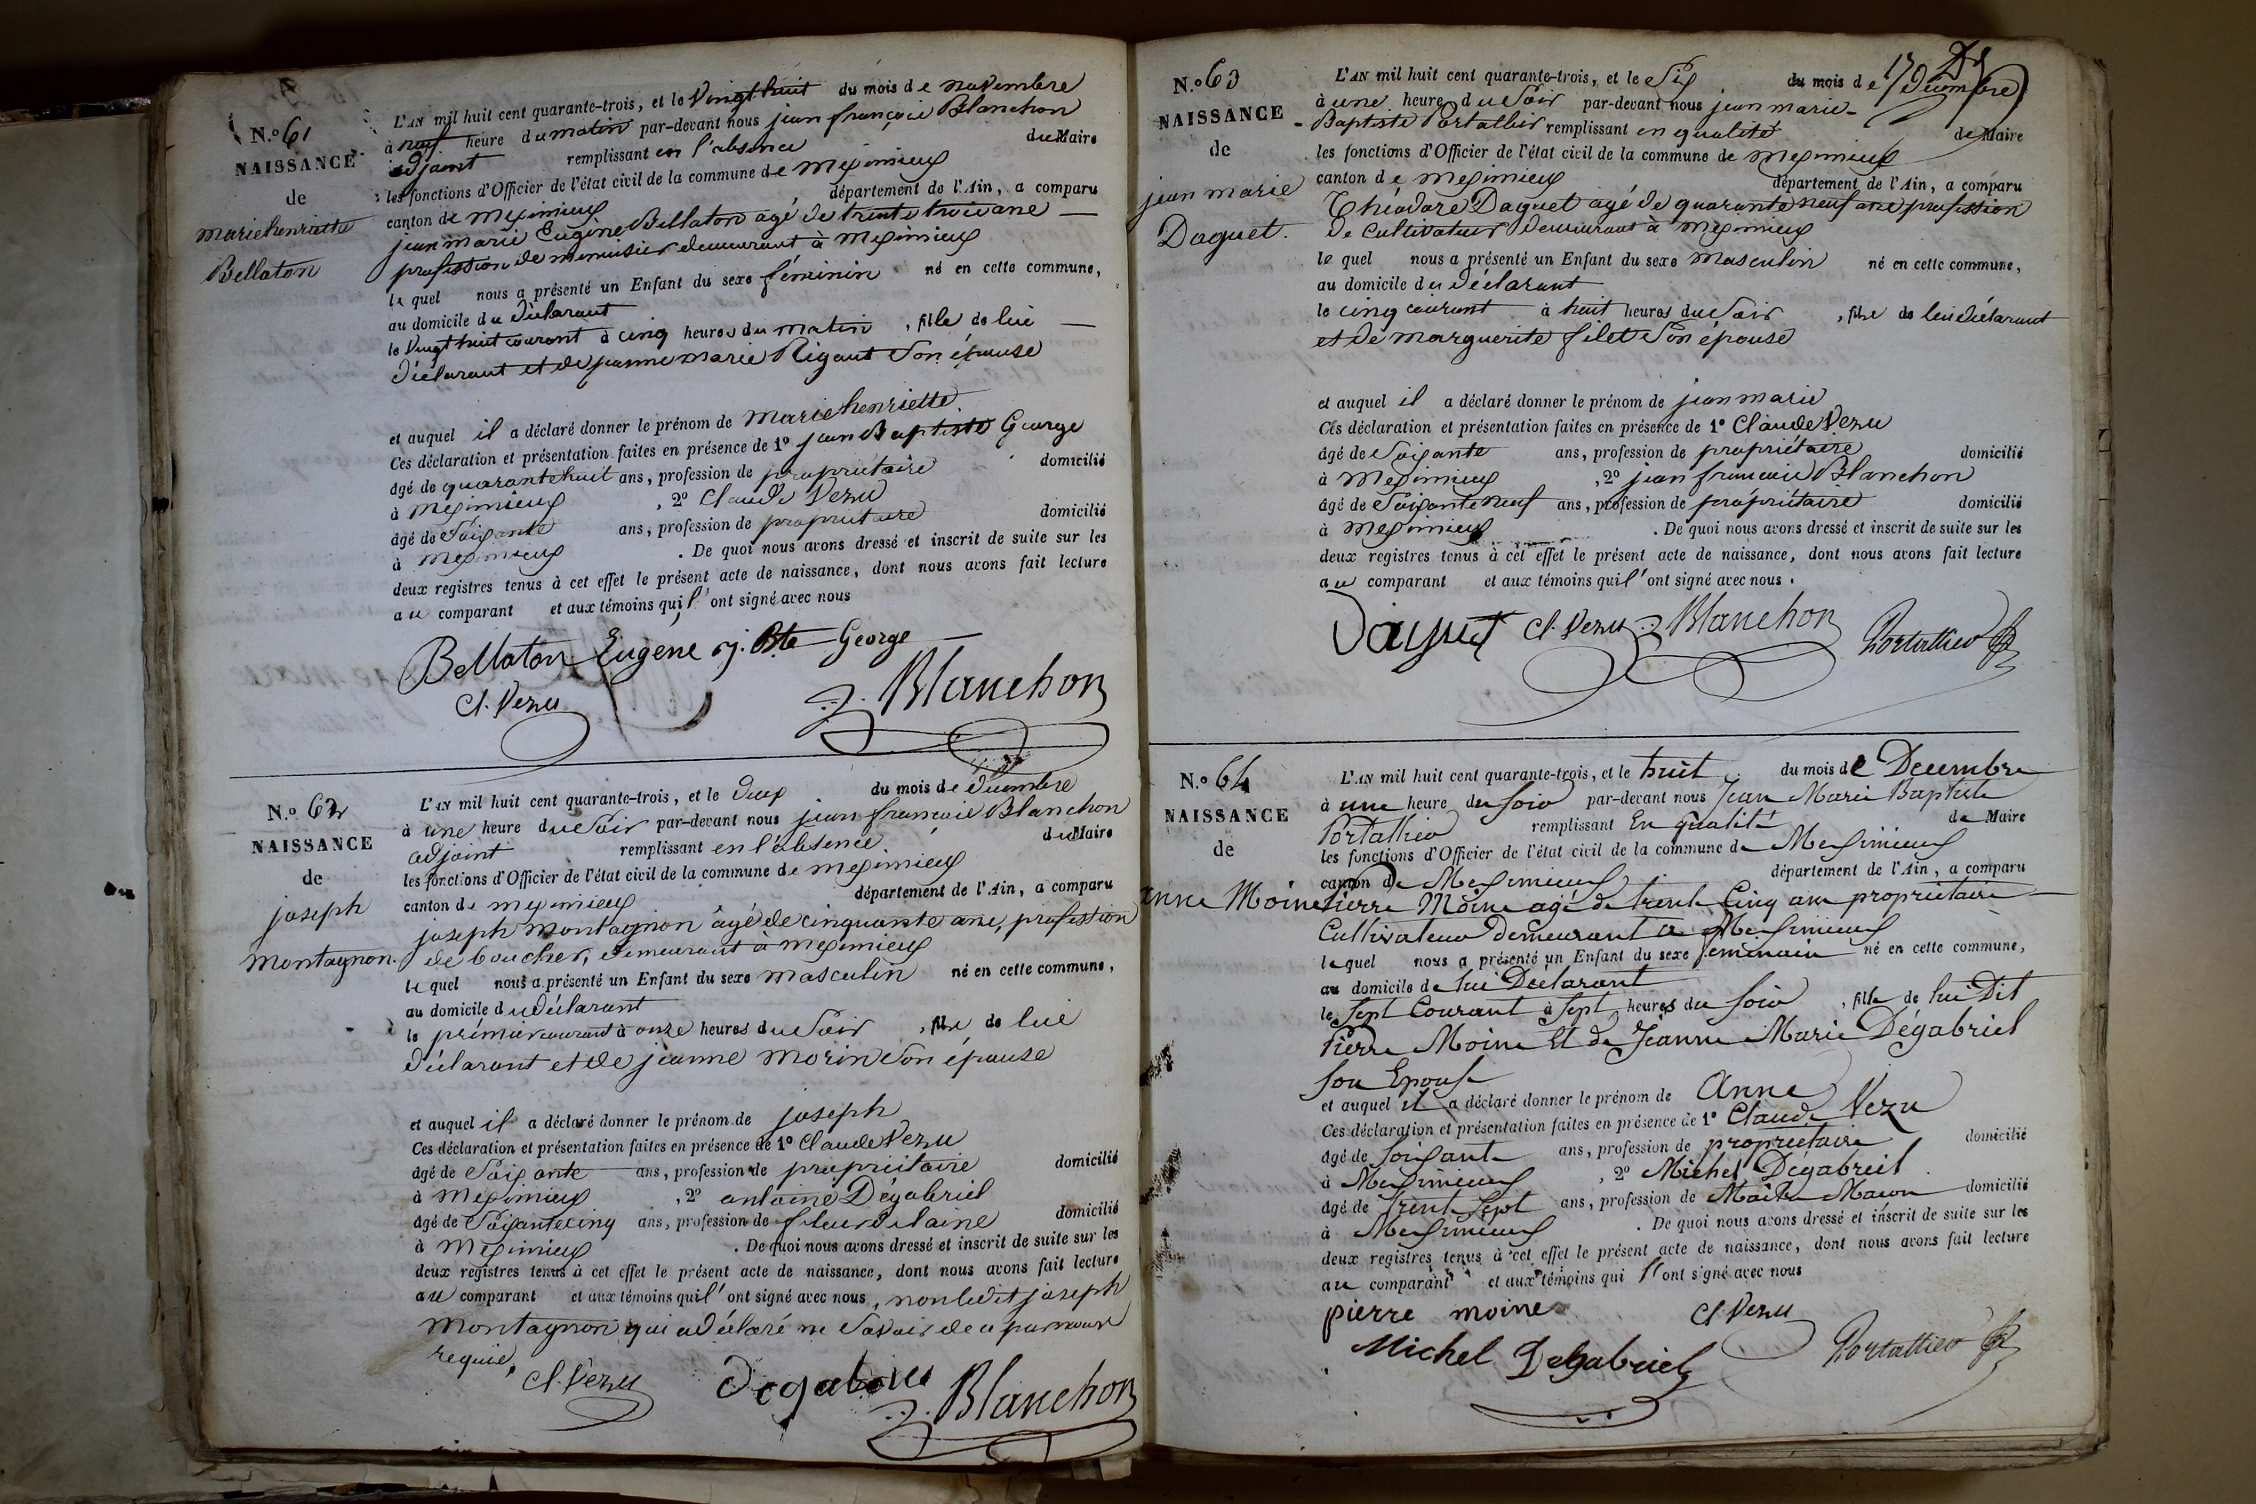 N.o 61
NAISSANCE
de
marie henriette
Bellaton
L'AN mil huit cent quarante-trois, et le vingt huit du mois de novembre
à neuf heure du matin par-devant nous jean françois Blanchon
adjoint remplissant en l'absence du Maire
les fonctions d'Officier de l'état civil de la commune de meximieux
canton de meximieux département de l'Ain, a comparu
jean marie Eugène Bellaton agé de trente trois ans
profession de menuisier demeurant à meximieux
le quel nous a présenté un Enfant du sexe féminin né en cette commune,
au domicile du déclarant
le vingt huit courant à cinq heures du matin, fille de lui
déclarant et de jeanne marie Rigaut son épouse
et auquel il a déclaré donner le prénom de marie henriette
Ces déclaration et présentation faites en présence de 1o jean Baptiste George
âgé de quarante huit ans, profession de propriétaire domicilié
à meximieux, 2o Claude Vezu
âgé de soixante ans, profession de propriétaire domicilié
à meximieux. De quoi nous avons dressé et inscrit de suite sur les
deux registres tenus à cet effet le présent acte de naissance, dont nous avons fait lecture
au comparant et aux témoins qui l'ont signé avec nous
Bellaton Eugene j. Bte George
Cl. Vezu Blanchon
N.o 62
NAISSANCE
de
joseph
montagnon.
L'AN mil huit cent quarante-trois, et le deux du mois de décembre
à une heure du soir par-devant nous jean françois Blanchon
adjoint remplissant en l'absence du Maire
les fonctions d'Officier de l'état civil de la commune de meximieux
canton de meximieux département de l'Ain, a comparu
joseph montagnon âgé de cinquante ans, profession
de boucher, demeurant à meximieux
le quel nous a présenté un Enfant du sexe masculin né en cette commune,
au domicile du déclarant
le premier courant à onze heures du soir, fils de lui
déclarant et de jeanne morin son épouse
et auquel il a déclaré donner le prénom de joseph
Ces déclaration et présentation faites en présence de 1o Claude Vezu
âgé de soixante ans, profession de propriétaire domicilié
à meximieux, 2o antoine Dégabriel
âgé de soixante cinq ans, profession de fileur de laine domicilié
à meximieux. De quoi nous avons dressé et inscrit de suite sur les
deux registres tenus à cet effet le présent acte de naissance, dont nous avons fait lecture
au comparant et aux témoins qui l'ont signé avec nous, non ledit joseph
montagnon qui a déclaré ne savoir de ce par nous
requis. Cl. Vezu Degabriel Blanchon
N.o 63
NAISSANCE
de
jean marie
Daguet.
L'AN mil huit cent quarante-trois, et le six du mois de décembre
à une heure du soir par-devant nous jean marie
Baptiste Portallier remplissant en qualité de Maire
les fonctions d'Officier de l'état civil de la commune de meximieux
canton de meximieux département de l'Ain, a comparu
Théodore Daguet agé de quarante neuf ans profession
de cultivateur demeurant à meximieux
le quel nous a présenté un Enfant du sexe masculin né en cette commune,
au domicile du déclarant
le cinq courant à huit heures du soir, fils de lui déclarant
et de marguerite filet son épouse
et auquel il a déclaré donner le prénom de jean marie
Ces déclaration et présentation faites en présence de 1o Claude Vezu
âgé de soixante ans, profession de propriétaire domicilié
à meximieux, 2o jean françois Blanchon
âgé de soixante neuf ans, profession de propriétaire domicilié
à meximieux. De quoi nous avons dressé et inscrit de suite sur les
deux registres tenus à cet effet le présent acte de naissance, dont nous avons fait lecture
au comparant et aux témoins qui l'ont signé avec nous.
Daguet Cl. Vezu Blanchon Portallier
N.o 64
NAISSANCE
de
anne Moine
L'AN mil huit cent quarante-trois, et le huit du mois de Decembre
à une heure du soir par-devant nous Jean Marie Baptiste
Portallier remplissant En qualité de Maire
les fonctions d'Officier de l'état civil de la commune de Meximieux
canton de Meximieux département de l'Ain, a comparu
Pierre Moine agé de trente Cinq ans propriétaire
Cultivateur demeurant a Meximieux
lequel nous a présenté un Enfant du sexe feminain né en cette commune,
au domicile de lui Déclarant
le Sept Courant à Sept heures du soir, fille de lui Dit
Pierre Moine Et de Jeanne Marie Dégabriel
son Epouse
et auquel il a déclaré donner le prénom de Anne
Ces déclaration et présentation faites en présence de 1o Claude Vezu
âgé de soixante ans, profession de propriétaire domicilié
à Meximieux, 2o Michel Dégabreil
âgé de trente Sept ans, profession de Maitre Macon domicilié
à Meximieux. De quoi nous avons dressé et inscrit de suite sur les
deux registres tenus à cet effet le présent acte de naissance, dont nous avons fait lecture
au comparant et aux témoins qui l'ont signé avec nous
pierre moine Cl. Vezu
Michel Degabriel Portallier